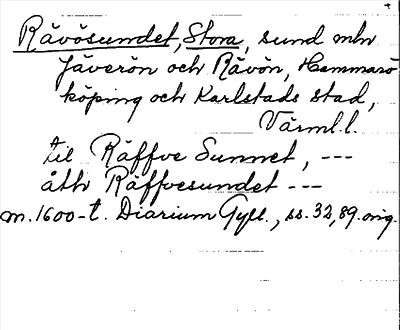 Rävösundet, Stora, sund mln
Jäverön och Rävön, Hammarö
köping och Karlstads stad,
Värml. l.
til Räffve Sunnet, ---
åth Räffvesundet ---
m. 1600-t. Diarium Gyll., ss. 32, 89. orig.